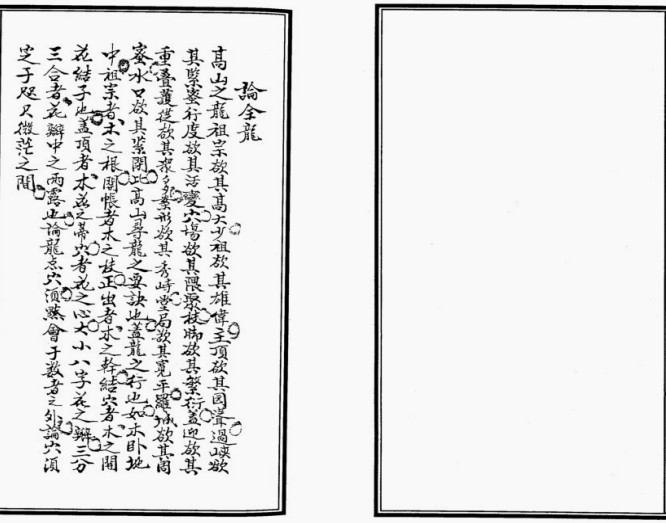 論全龍
高山之龍祖宗欲其高大少祖欲其雄偉主頂欲其圓聳過峽欲
其緊蜜行度欲其活變穴場欲其隈聚枝脚欲其繁衍蓋迎欲其
重疊護從欲其眾多案形欲其秀峙堂局欲其寬平羅城欲其周
密水口欲其紧閉此高山尋龍之要訣也蓋龍之行也如木卧地
中祖宗者木之根開帳者木之枝正出者木之幹結穴者木之開
花結子也蓋頂者木花之蒂穴者花之心大小八字花之瓣三分
三合者花瓣中之雨露也論龍点穴須默會于数者之外論穴須
定于咫尺微茫之間